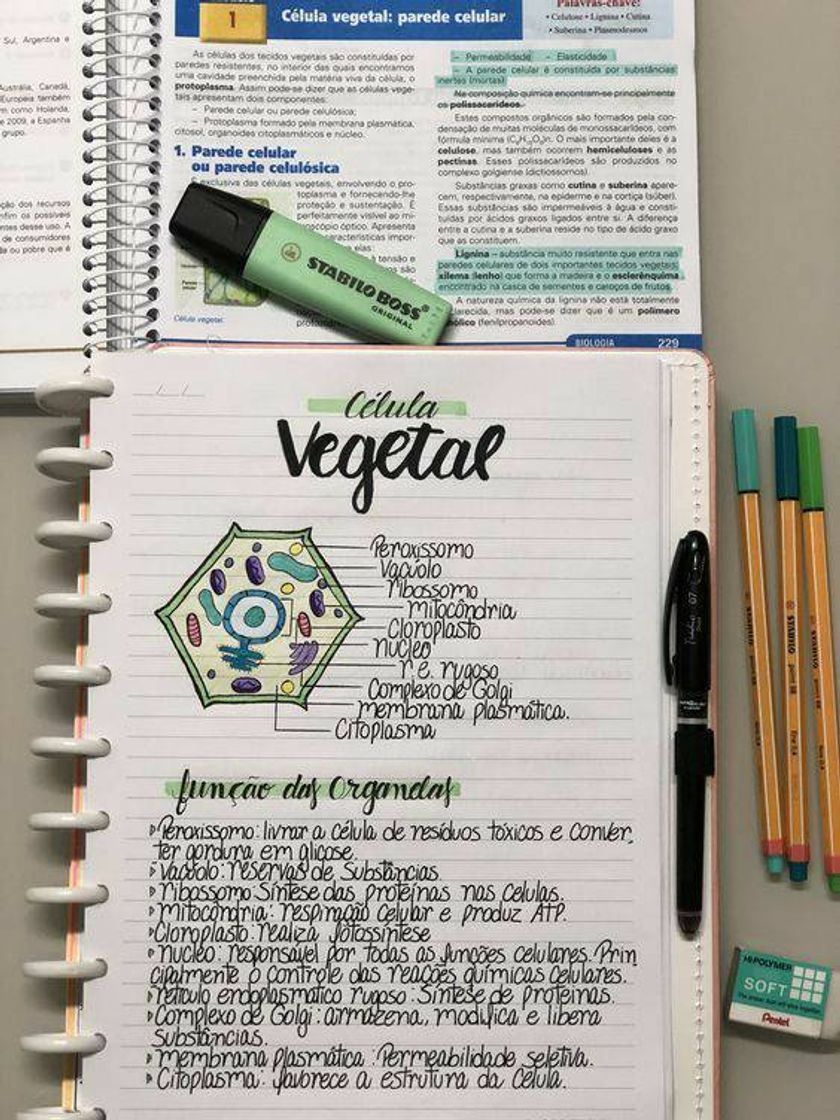 Sul, Argentina e
Austrália, Canadá,
Europeia também
com como Holanda,
e 2009, a Espanha
grupo.
ção dos recursos
nfim os possíveis
ntes desse uso. A
de consumidores
da ou pobre que é
1
Célula vegetal: parede celular
Palavras-chave:
• Celulose • Lignina • Cutina
• Suberina • Plasmodesmos
As células dos tecidos vegetais são constituídas por
paredes resistentes, no interior das quais encontramos
uma cavidade preenchida pela matéria viva da célula, o
protoplasma. Assim pode-se dizer que as células vege-
tais apresentam dois componentes:
– Parede celular ou parede celulósica;
– Protoplasma formado pela membrana plasmática,
citosol, organoides citoplasmáticos e núcleo.
1. Parede celular
ou parede celulósica
É exclusiva das células vegetais, envolvendo o pro-
toplasma e fornecendo-lhe
proteção e sustentação. É
perfeitamente visível ao mi-
croscópio óptico. Apresenta
características impor-
elas:
à tensão e
são
Célula vegetal.
– Permeabilidade – Elasticidade
– A parede celular é constituída por substâncias
inertes (mortas)
Na composição química encontram-se principalmente
os polissacarídeos.
Estes compostos orgânicos são formados pela con-
densação de muitas moléculas de monossacarídeos, com
fórmula mínima (C₆H₁₀O₅)n. O mais importante deles é a
celulose, mas também ocorrem hemiceluloses e as
pectinas. Esses polissacarídeos são produzidos no
complexo golgiense (dictiossomos).
Substâncias graxas como cutina e suberina apare-
cem, respectivamente, na epiderme e na cortiça (súber).
Essas substâncias são impermeáveis à água e consti-
tuídas por ácidos graxos ligados entre si. A diferença
entre a cutina e a suberina reside no tipo de ácido graxo
que as constituem.
Lignina – substância muito resistente que entra nas
paredes celulares de dois importantes tecidos vegetais:
xilema (lenho) que forma a madeira e o esclerênquima,
encontrado na casca de sementes e caroços de frutos.
A natureza química da lignina não está totalmente
esclarecida, mas pode-se dizer que é um polímero
fenólico (fenilpropanoides).
STABILO BOSS
ORIGINAL
BIOLOGIA 229
Célula
Vegetal
Peroxissomo
Vacúolo
ribossomo
mitocôndria
Cloroplasto
núcleo
r.e. rugoso
Complexo de Golgi
membrana plasmática.
Citoplasma
função das Organelas
Peroxissomo: livrar a célula de resíduos tóxicos e conver-
ter gordura em glicose.
Vacúolo: reservas de Substâncias.
ribossomo: Síntese das proteínas nas Células.
mitocôndria: respiração Celular e produz ATP.
Cloroplasto: realiza fotossíntese
núcleo: responsável por todas as funções celulares. Prin
cipalmente o controle das reações químicas celulares.
retículo endoplasmático rugoso: Síntese de proteínas.
Complexo de Golgi: armazena, modifica e libera
Substâncias.
membrana plasmática: Permeabilidade seletiva.
Citoplasma: favorece a estrutura da Célula.
STABILO
STABILO
HI-POLYMER
SOFT
Pentel